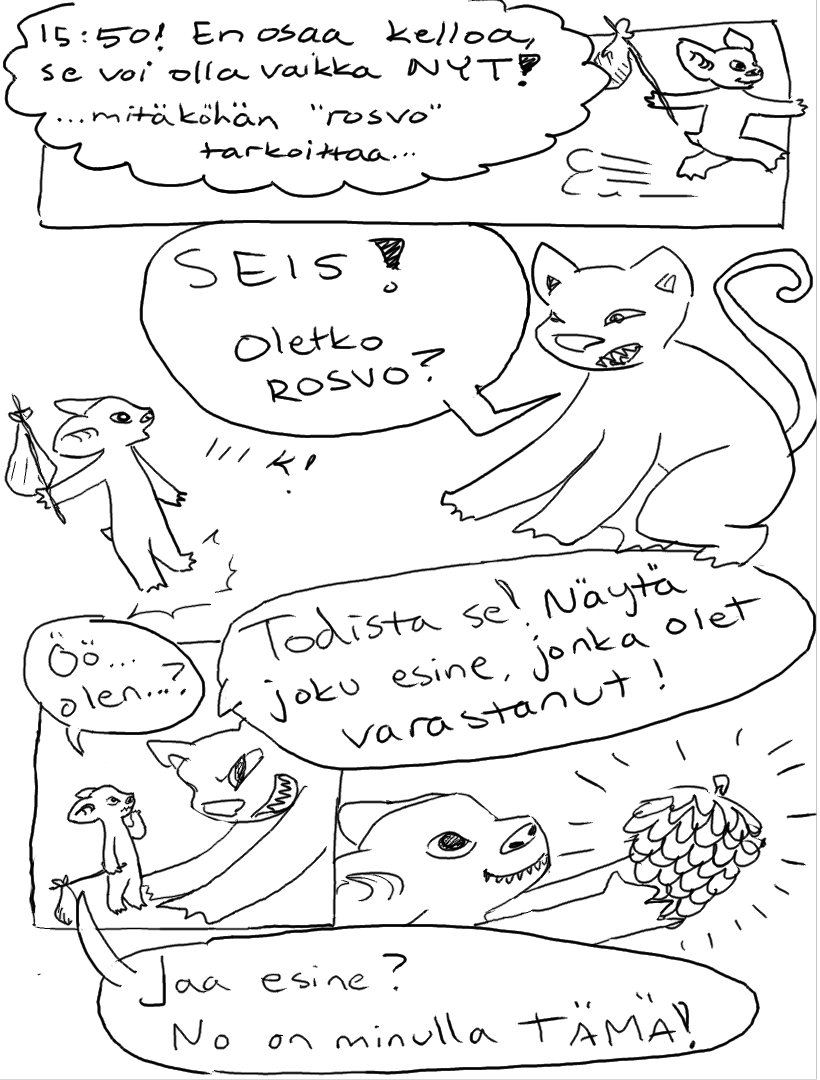 15:50! En osaa kelloa,
se voi olla vaikka NYT!
...mitäköhän "rosvo"
tarkoittaa...
SEIS!
Oletko
ROSVO?
Öö...
olen...?
Todista se! Näytä
joku esine, jonka olet
varastanut!
Jaa esine?
No on minulla TÄMÄ!